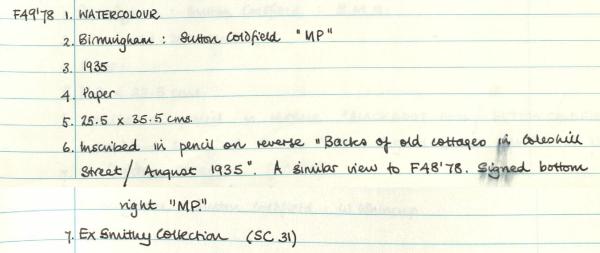 F49'78 1. WATERCOLOUR
2. Birmingham : Sutton Coldfield "MP"
3. 1935
4. Paper
5. 25.5 x 35.5 cms.
6. Inscribed in pencil on reverse "Backs of old cottages in Coleshill
Street / August 1935". A similar view to F48'78. Signed bottom
right "MP."
7. Ex Smithy Collection (SC.31)